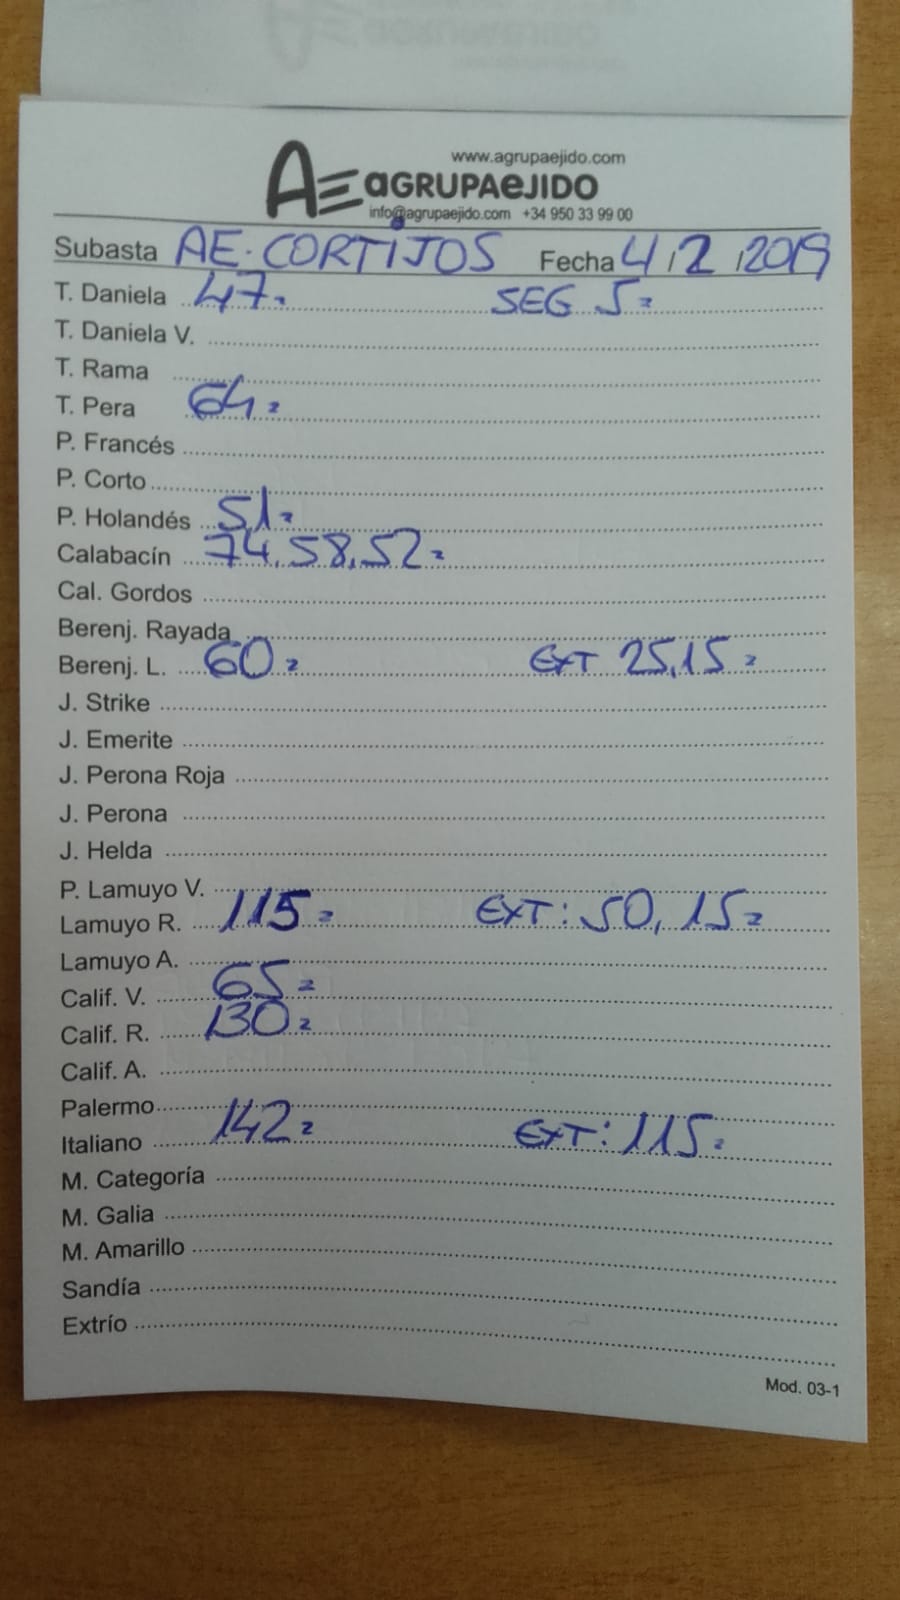 www.agrupaejido.com
AE aGRUPAeJIDO
info@agrupaejido.com +34 950 33 99 00
Subasta AE. CORTIJOS Fecha 4/2/2019
T. Daniela 47= SEG 5=
T. Daniela V.
T. Rama
T. Pera 64=
P. Francés
P. Corto
P. Holandés 51=
Calabacín 74,58,52=
Cal. Gordos
Berenj. Rayada
Berenj. L. 60= EXT 25,15=
J. Strike
J. Emerite
J. Perona Roja
J. Perona
J. Helda
P. Lamuyo V.
Lamuyo R. 115= EXT: 50, 15=
Lamuyo A.
Calif. V. 65=
Calif. R. 130=
Calif. A.
Palermo
Italiano 142= EXT: 115=
M. Categoría
M. Galia
M. Amarillo
Sandía
Extrío
Mod. 03-1